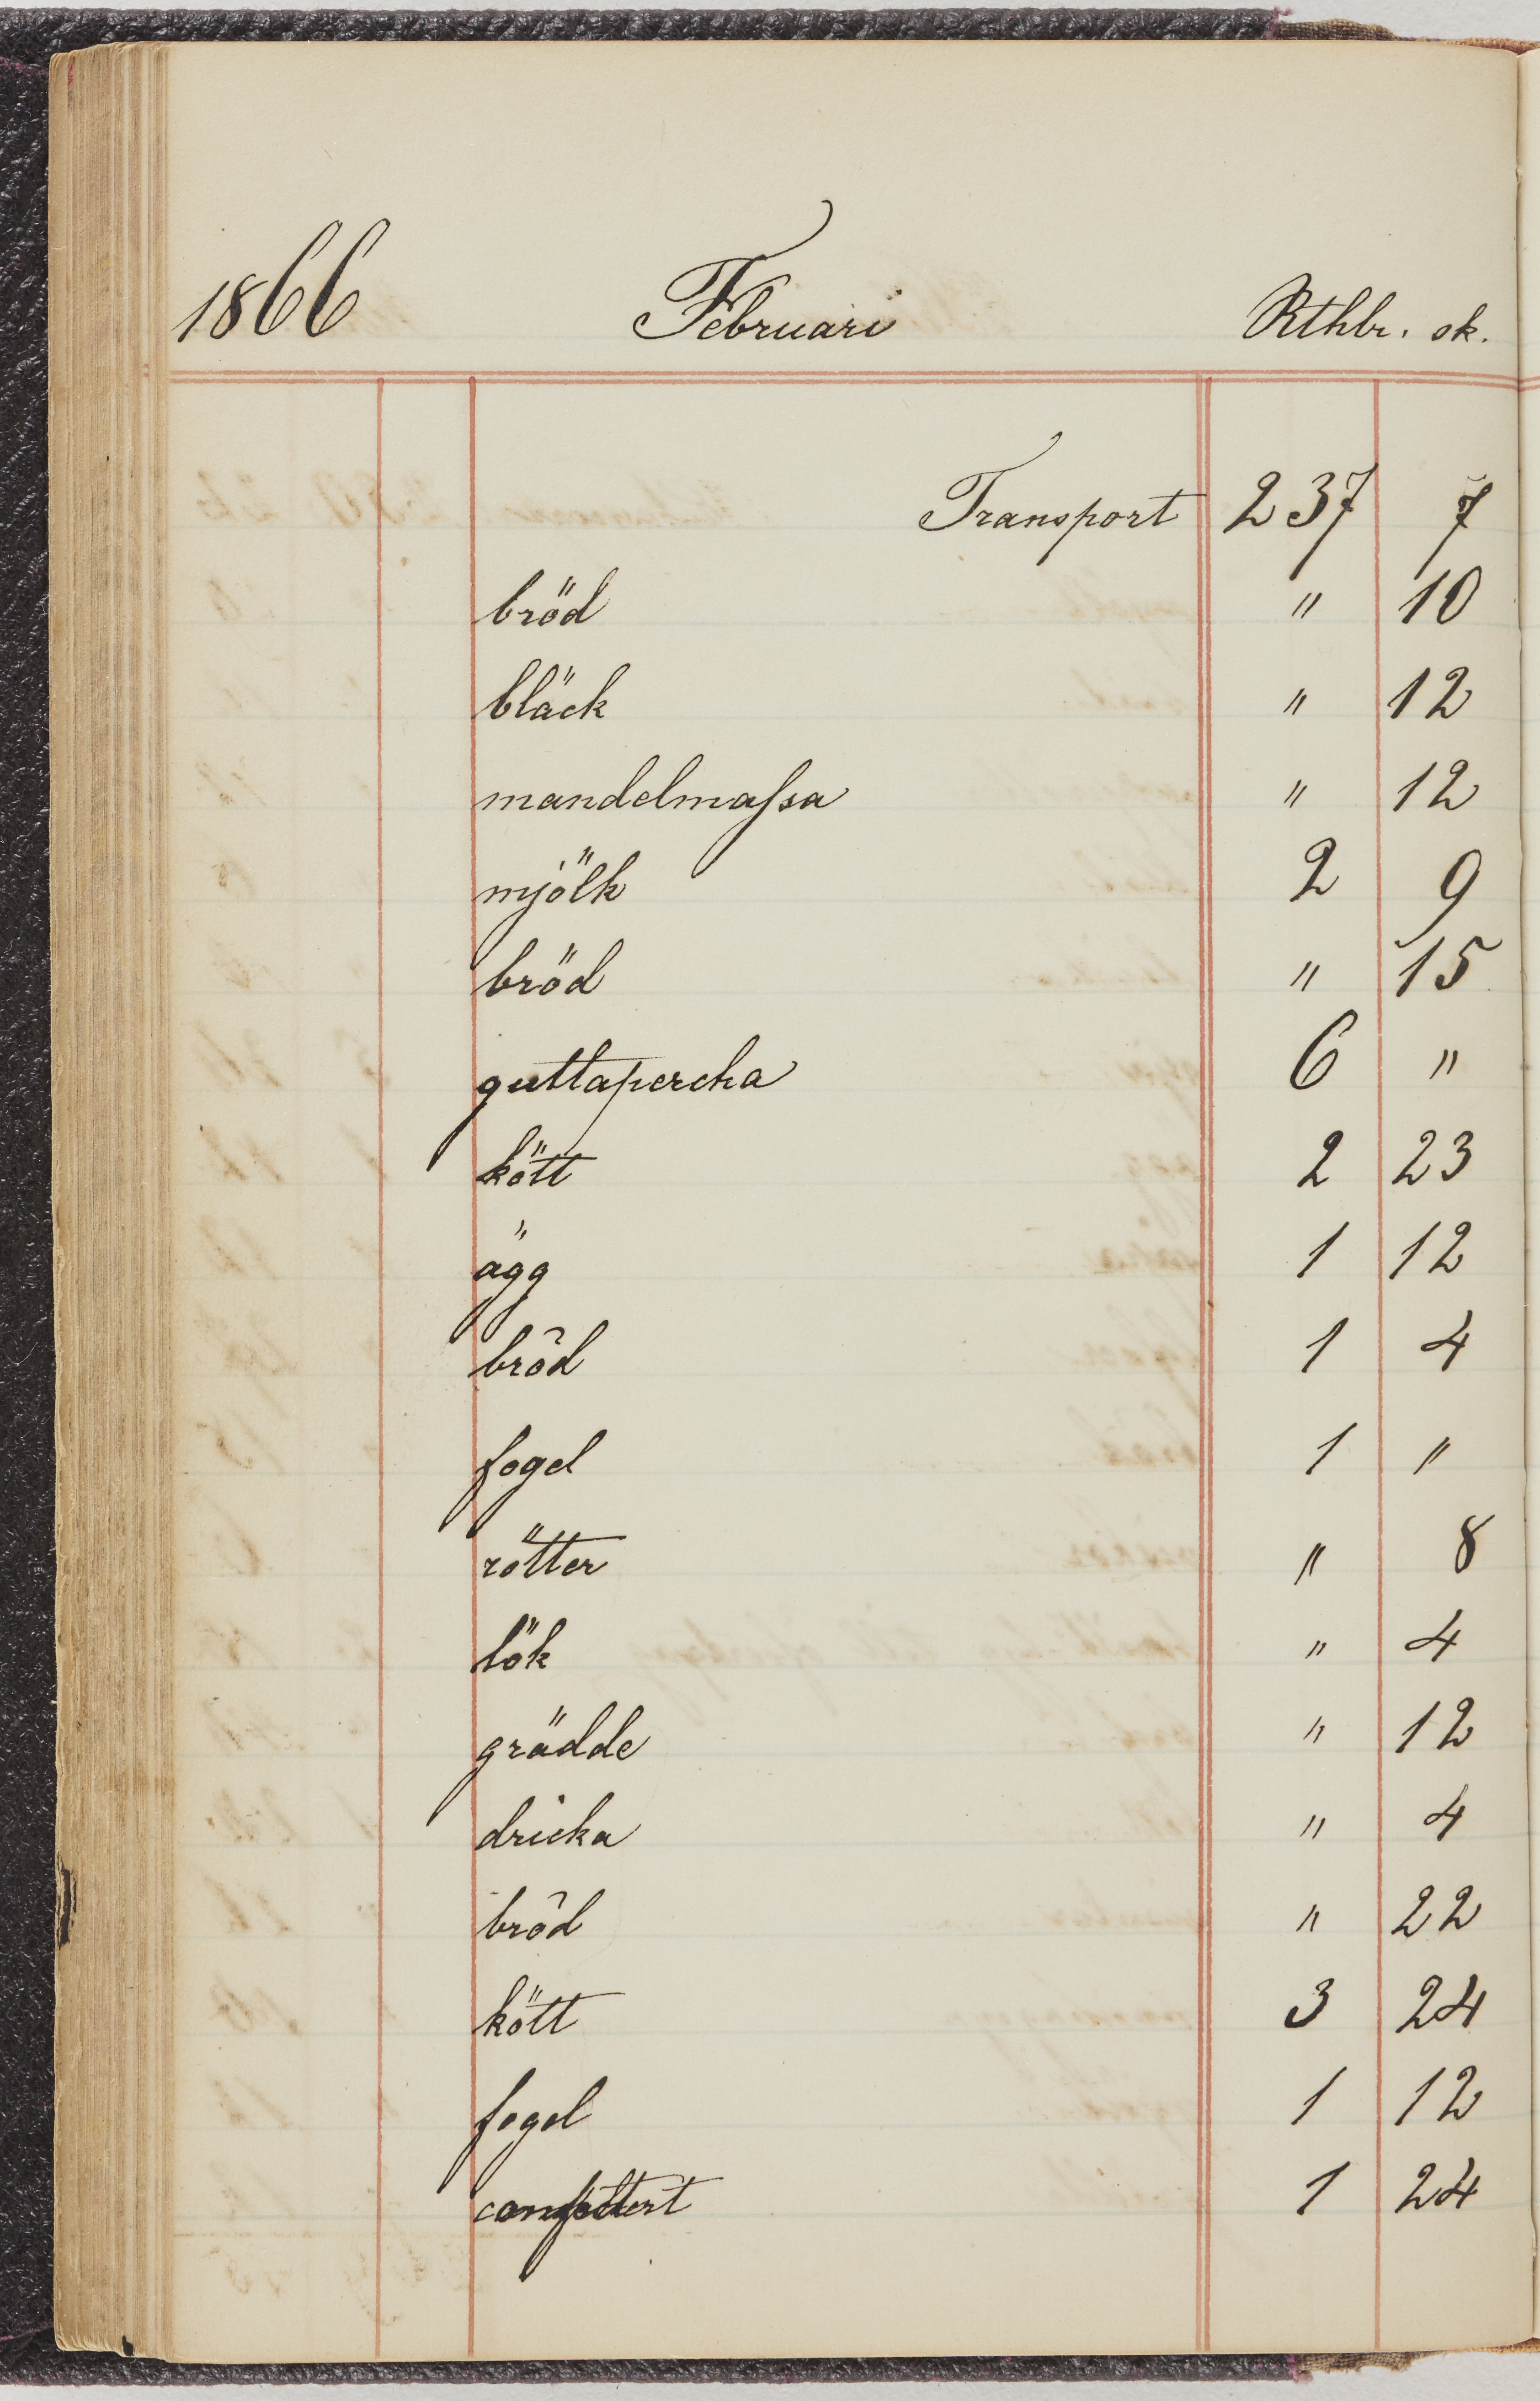 1866 Februari Rthlr. sk.
Transport 237 7
bröd " 10
bläck " 12
mandelmassa " 12
mjölk 2 9
bröd " 15
guttapercha 6 "
kött 2 23
ägg 1 12
bröd 1 4
fogel 1 "
rötter " 8
lök " 4
grädde " 12
dricka " 4
bröd " 22
kött 3 24
fogel 1 12
1 24